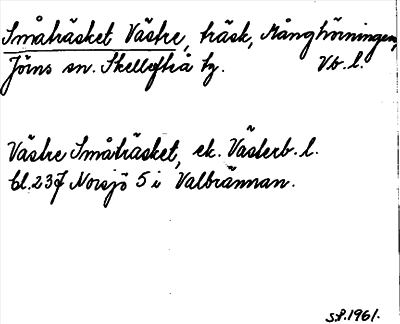 Småträsket Västre, träsk, Månghörningen,
Jörns sn. Skellefteå tg. Vb. l.
Västre Småträsket, ek. Västerb. l.
bl. 237 Norsjö 5 i Valbrännan.
S.P. 1961.